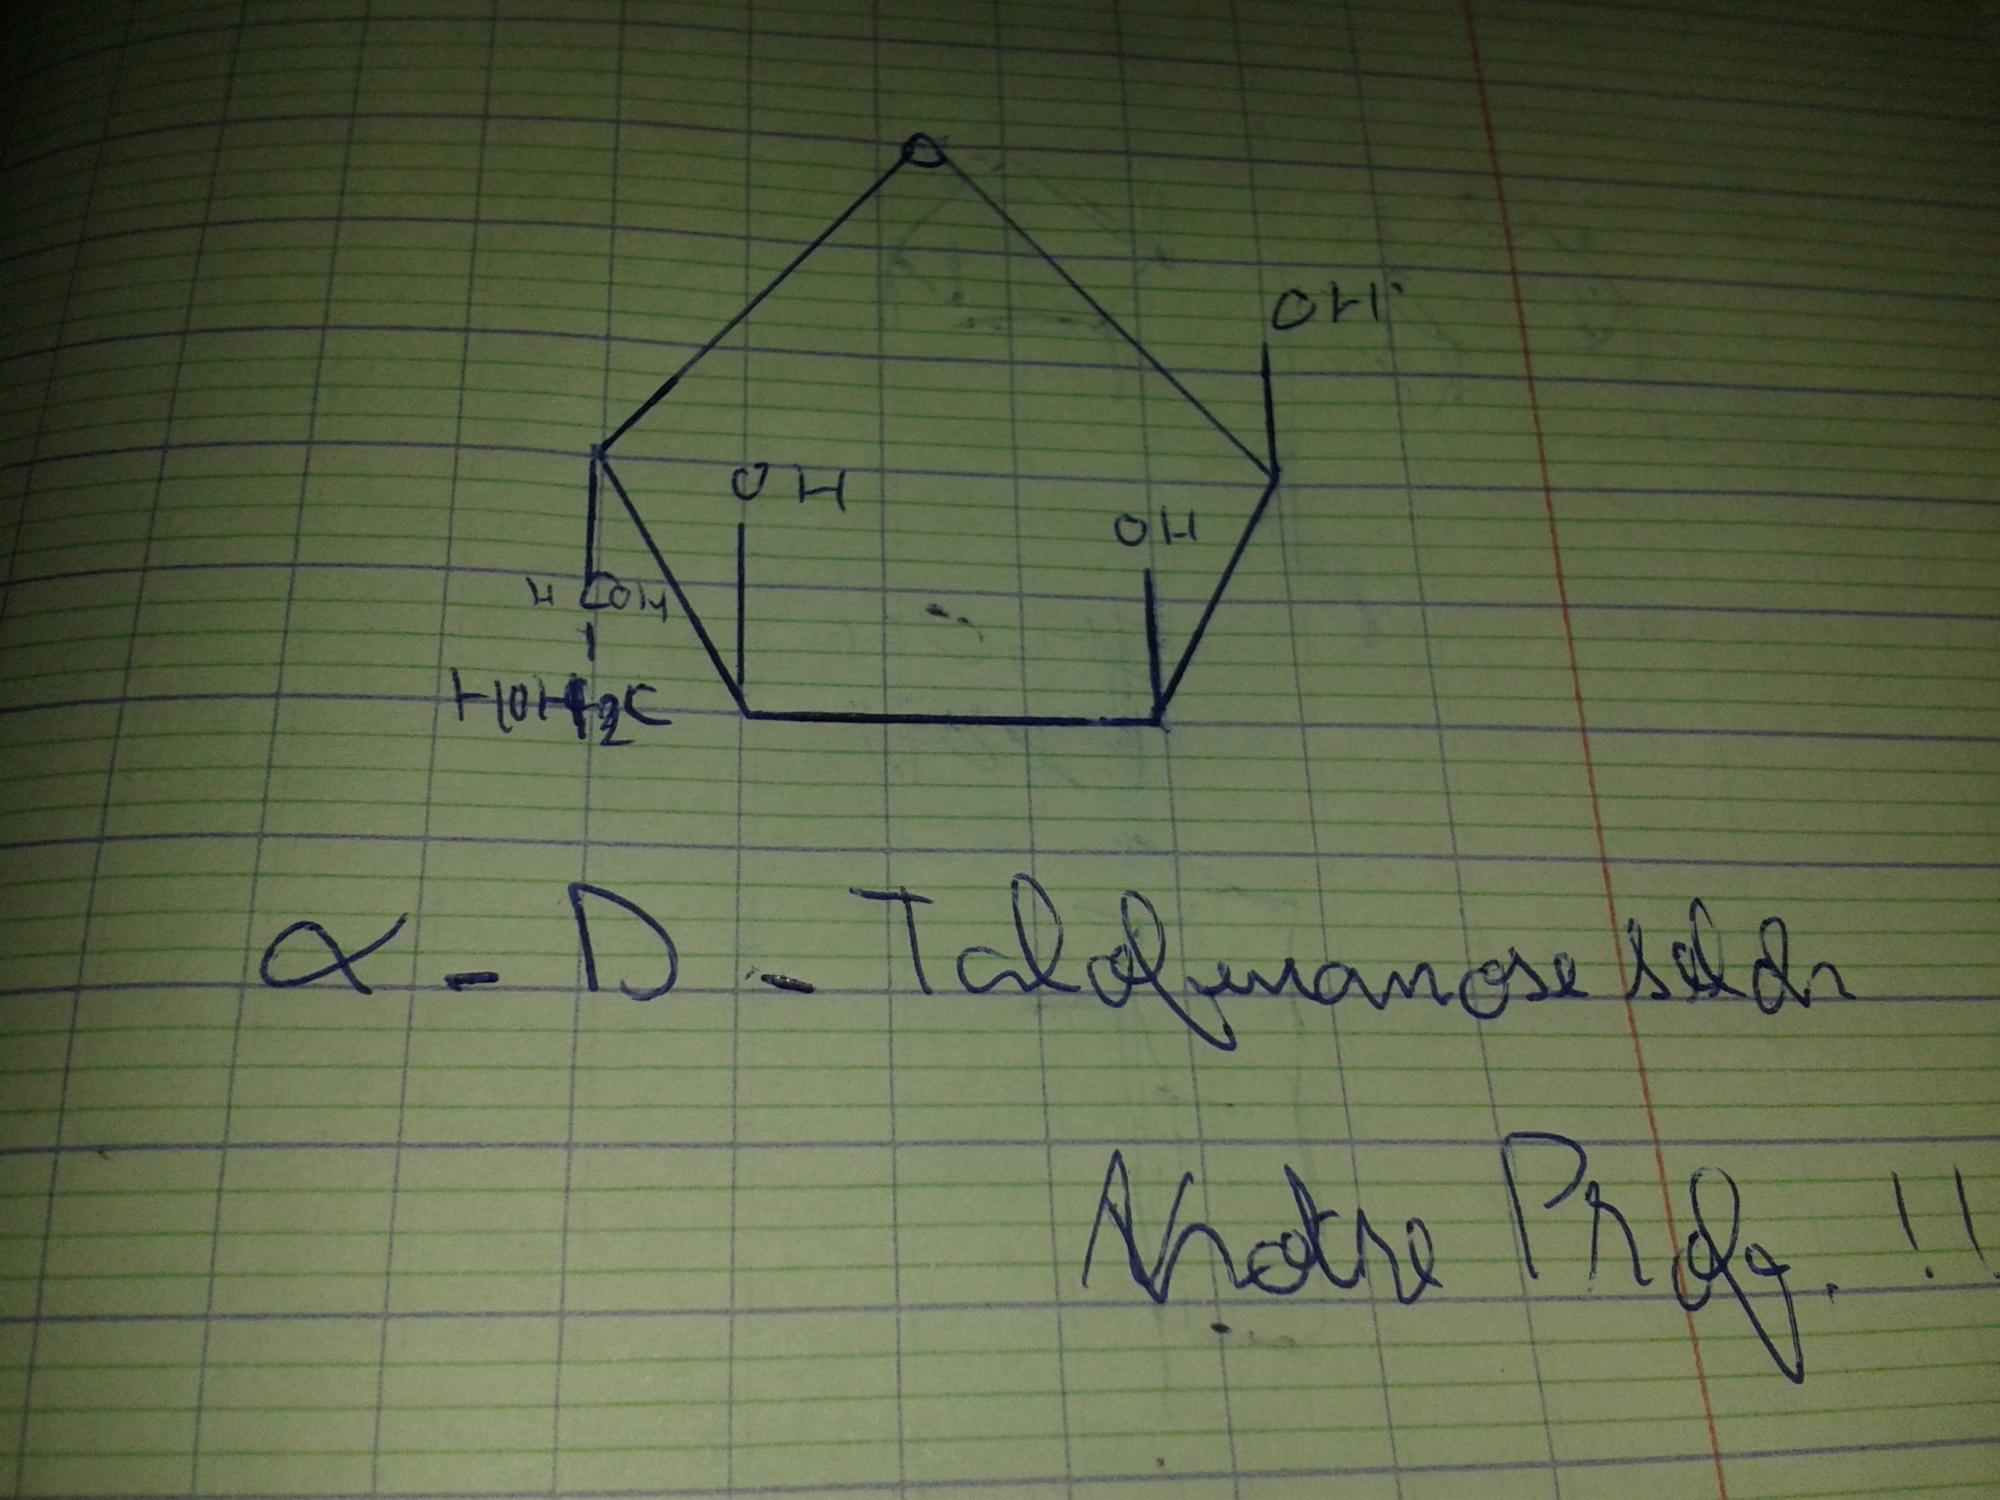 O
OH
OH
OH
H COH
HOH2C
α - D - Talofuranose selon
Notre Prof. !!